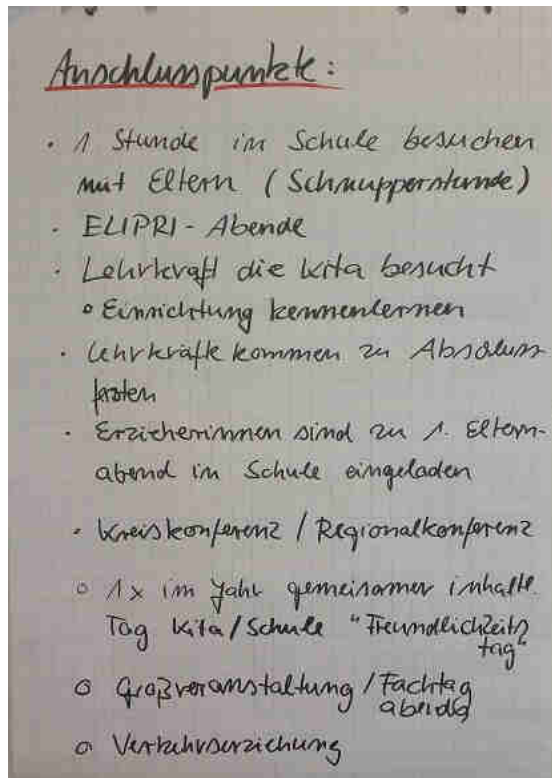 Anschlusspunkte:
· 1 Stunde in Schule besuchen
mit Eltern (Schnupperstunde)
· ELIPRI - Abende
· Lehrkraft die Kita besucht
° Einrichtung kennenlernen
· Lehrkräfte kommen zu Abschluss
festen
· Erzieherinnen sind zu 1. Eltern-
abend in Schule eingeladen
· Kreiskonferenz / Regionalkonferenz
o 1x im Jahr gemeinsamer inhaltl.
Tag Kita/Schule "Freundlichkeits
tag"
o Großveranstaltung / Fachtag
abends
o Verkehrserziehung